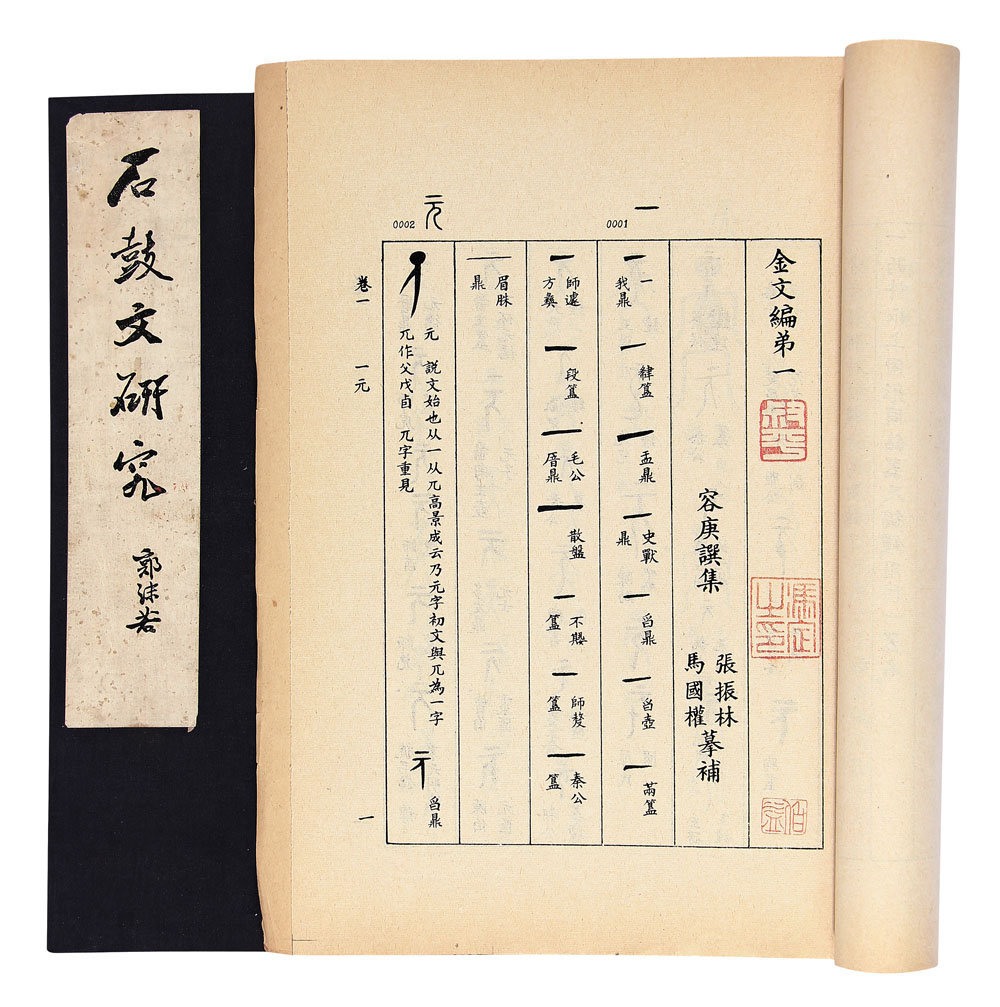 石鼓文研究
郭沫若
一
0001
元
0002
金文編弟一
容庚譔集
張振林
馬國權
摹補
一 我鼎 一 䋣簋 一 盂鼎 一 史獸鼎 一 舀鼎 一 舀壺 一 䓣簋
一 師遽方彝 一 段簋 一 毛公厝鼎 一 散盤 一 不𡢁簋 一 師嫠簋 一 秦公簋
一 眉脒鼎
元 說文始也从一从兀高景成云乃元字初文與兀為一字
兀作父戊卣 兀字重見
元 舀鼎
卷一 一元 一